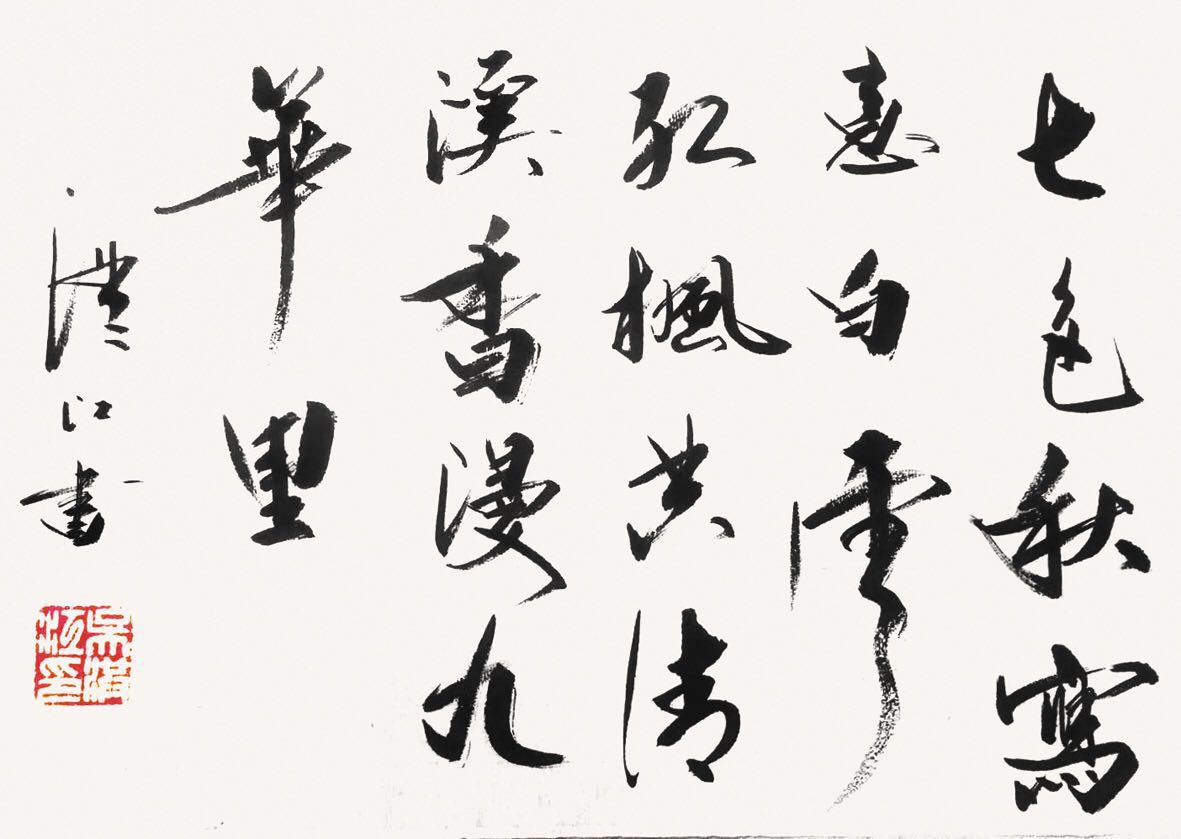 七色秋寫
意白雲
紅楓共清
溪香漫九
華里
江書